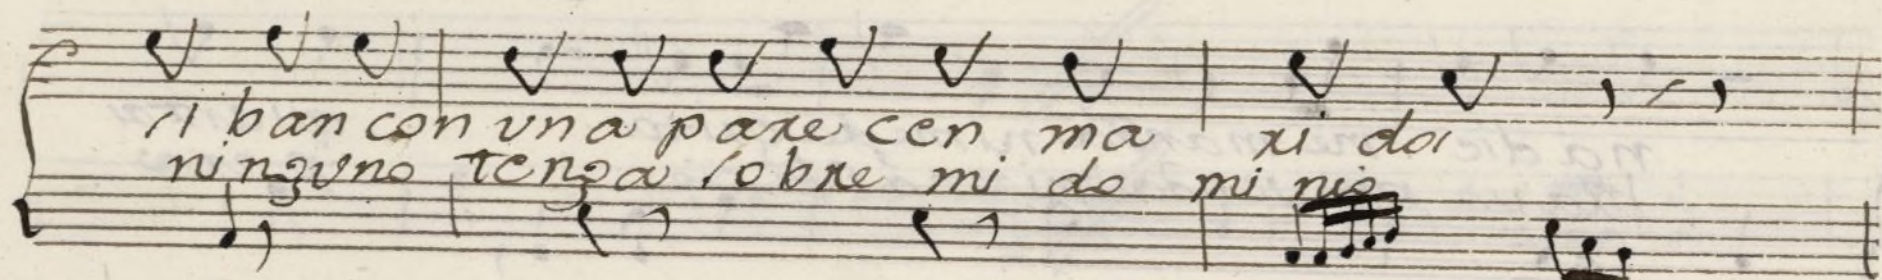 si ban con vna parecen ma ridos
ninguno tenga sobre mi do minio